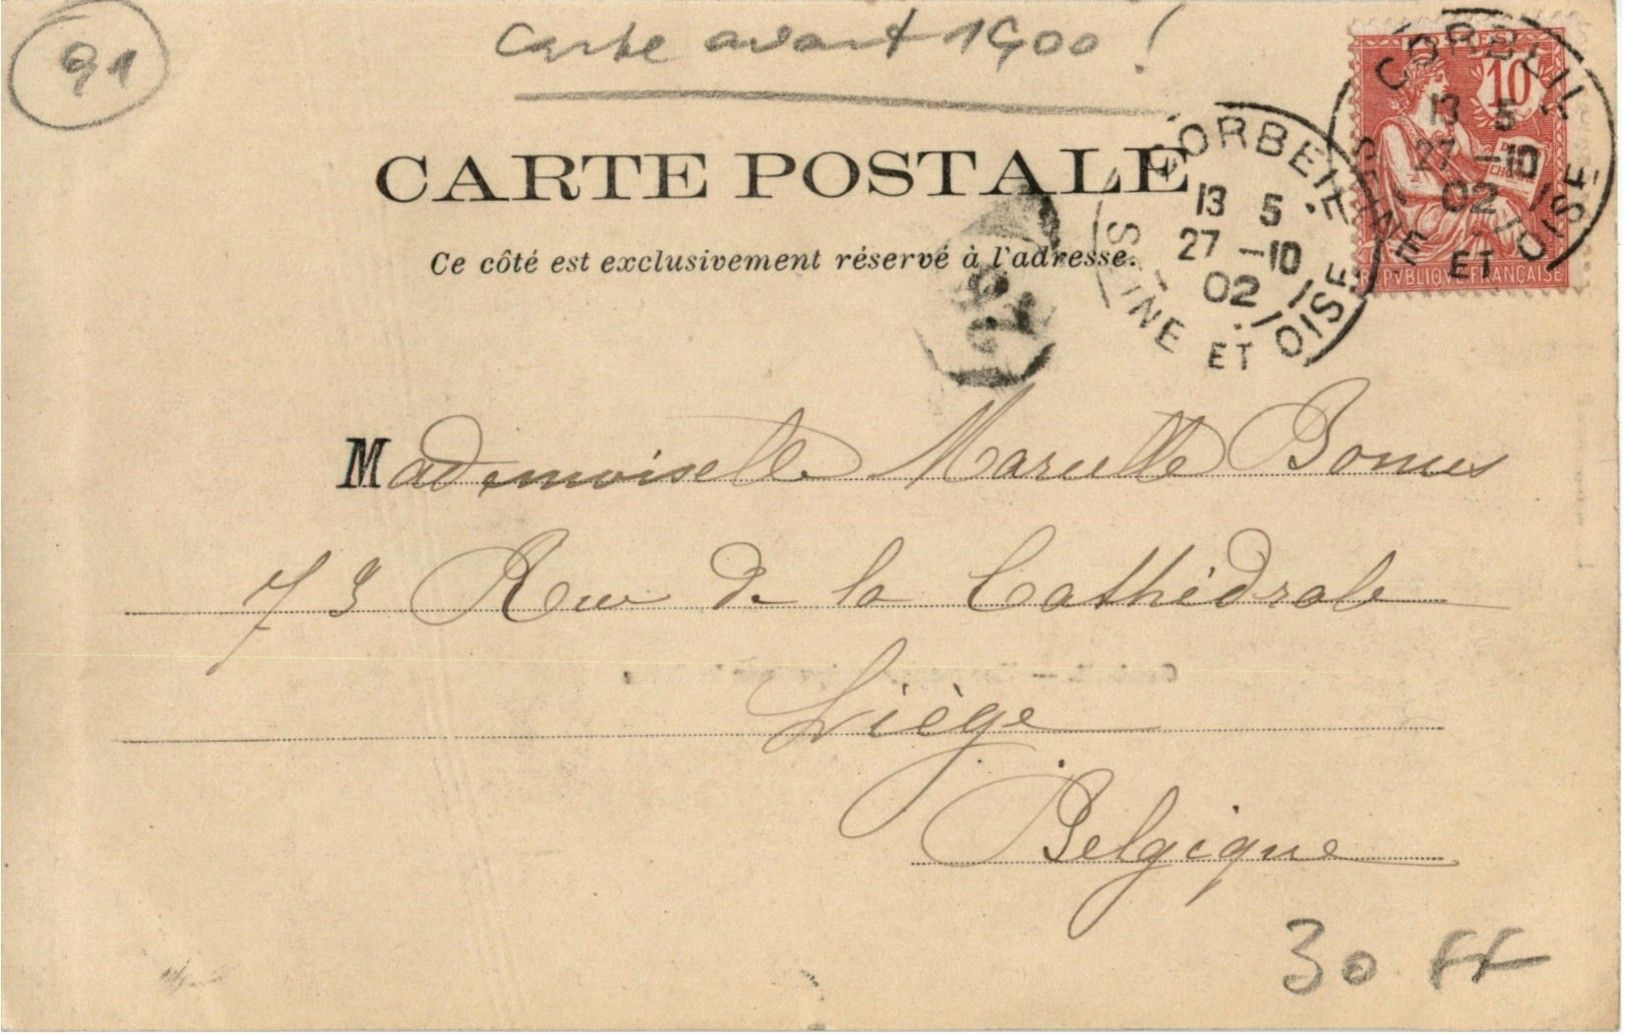 91
Carte avant 1900 !
CARTE POSTALE
Ce côté est exclusivement réservé à l'adresse.
CORBEIL
13 5
27 -10
02
SEINE ET OISE
CORBEIL
13 5
27 -10
02
SEINE ET OISE
10
REPVBLIQVE FRANÇAISE
Mademoiselle Marcelle
73 Rue de la Cathédrale
Liège
Belgique
30 FF